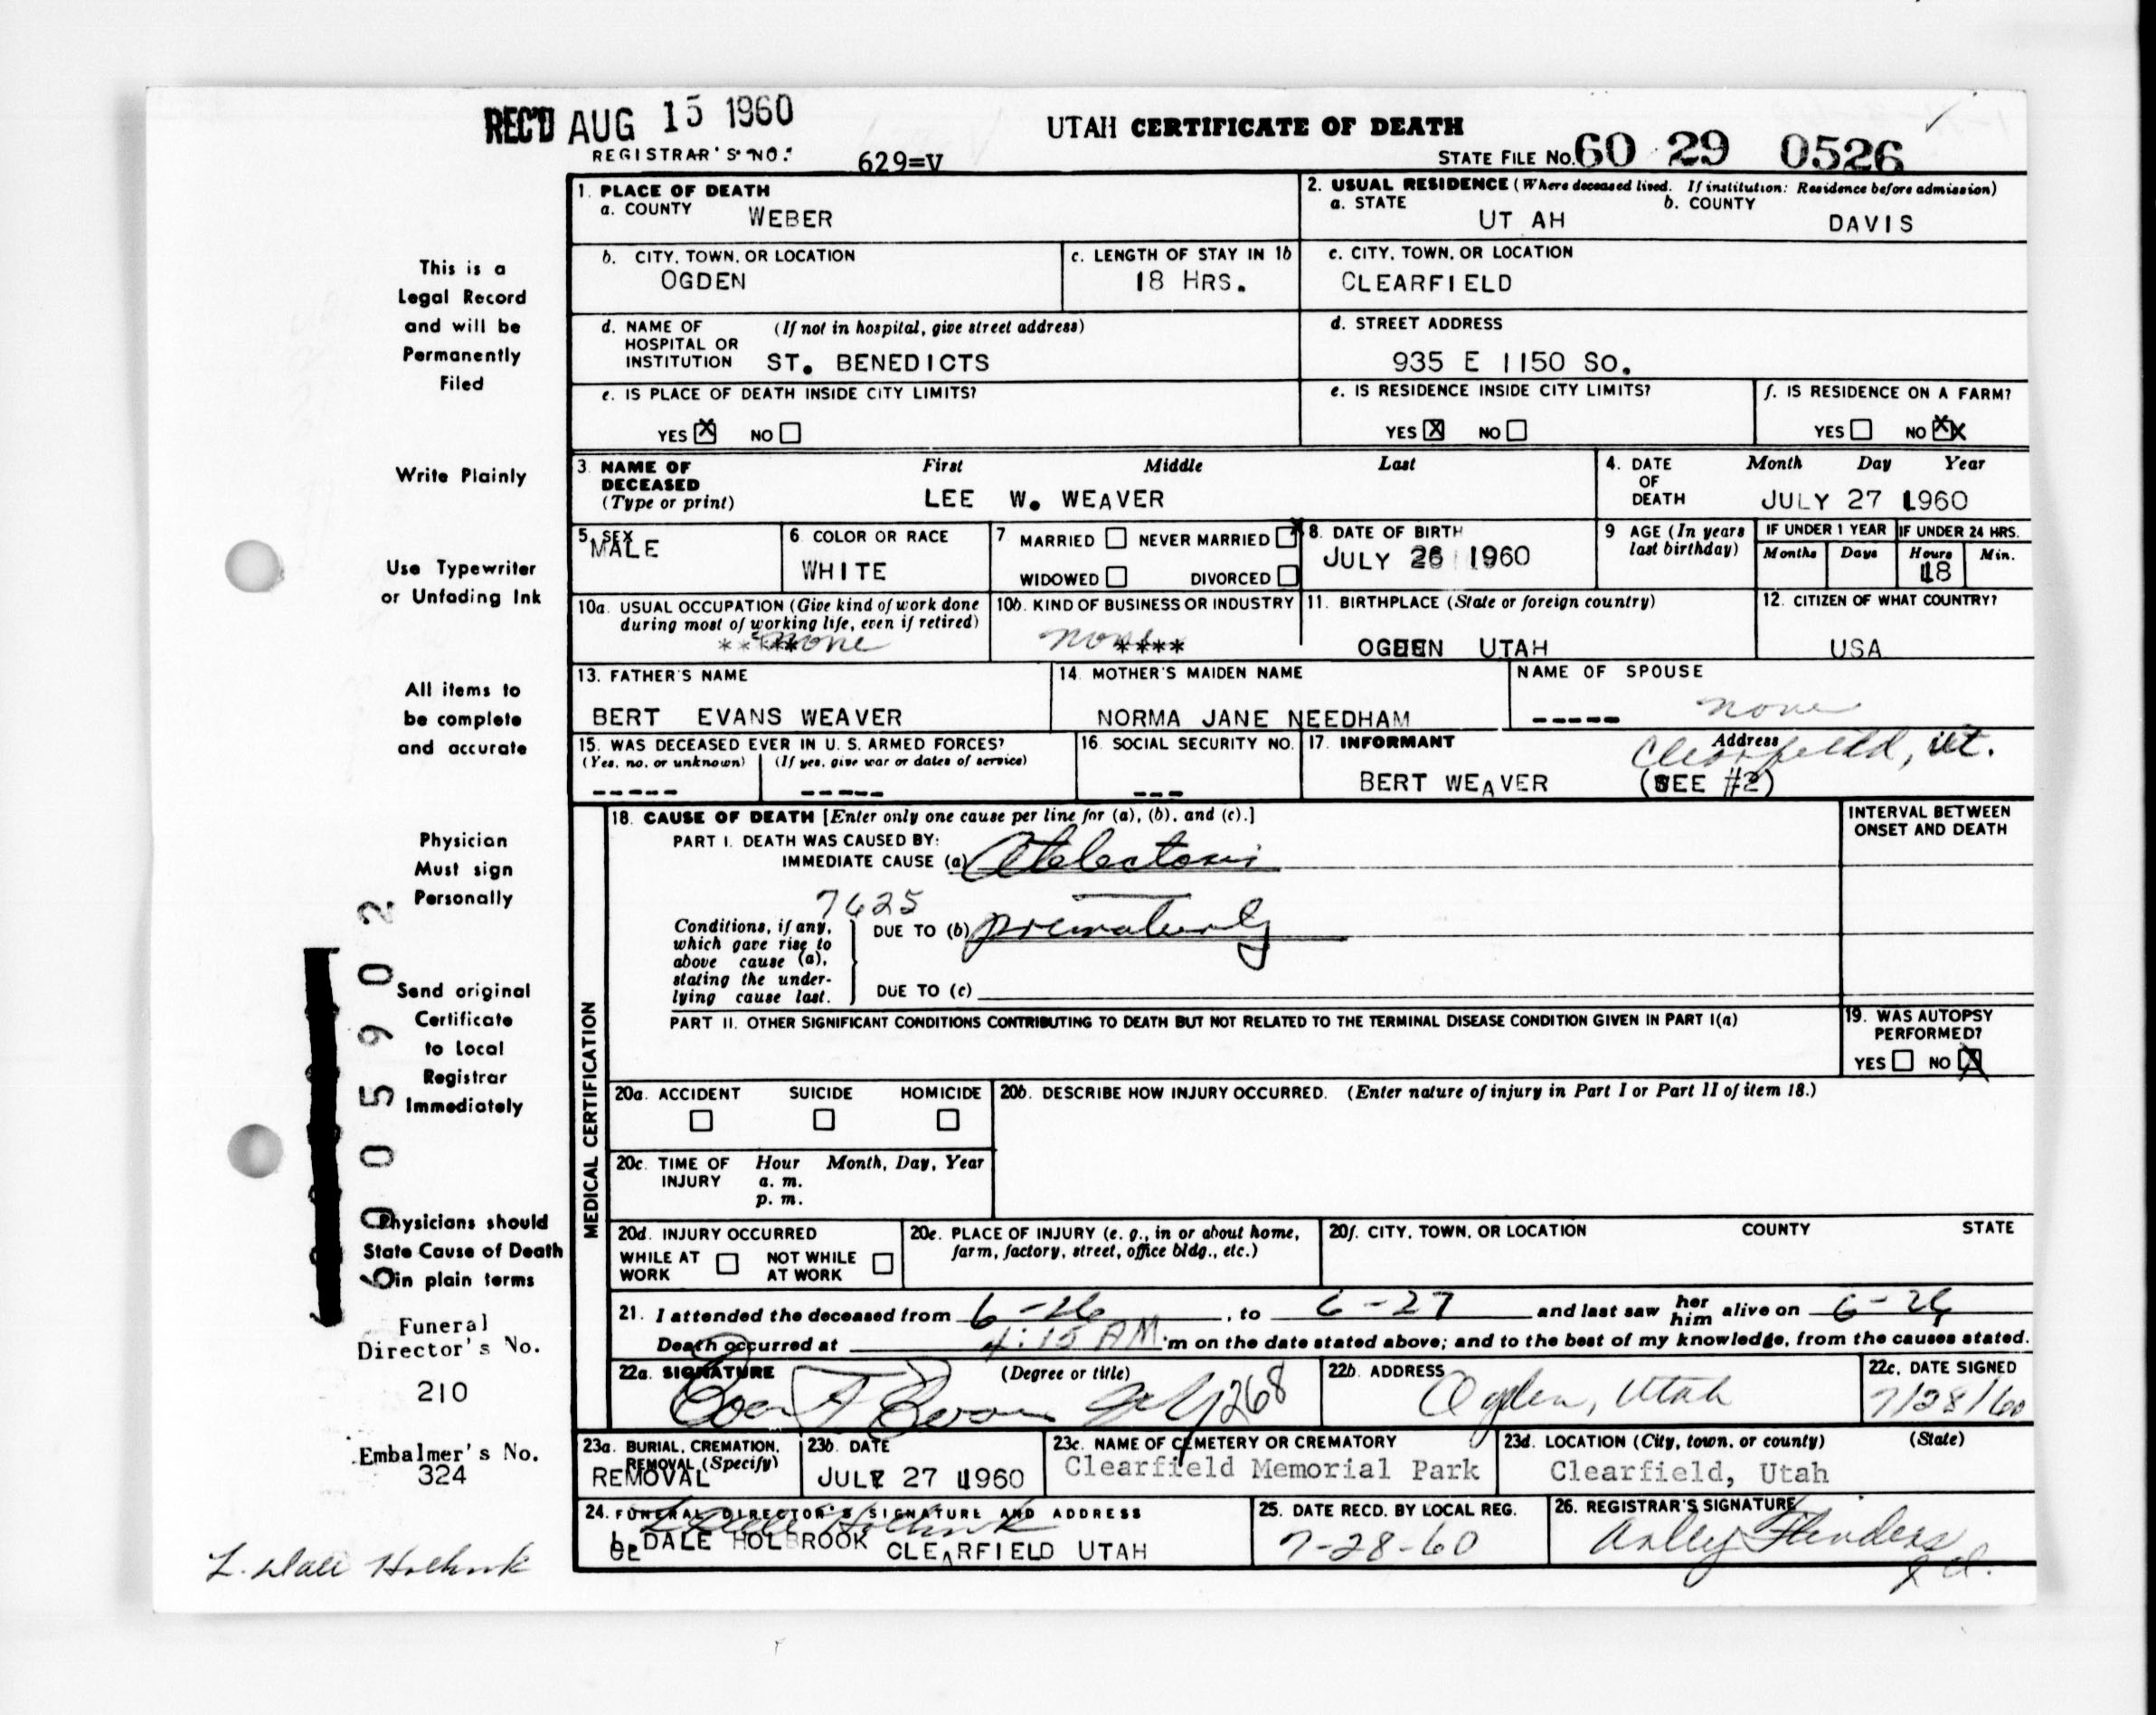 REC'D AUG 15 1960
UTAH CERTIFICATE OF DEATH
REGISTRAR'S NO. 629=V
STATE FILE NO. 60 29 0526
This is a
Legal Record
and will be
Permanently
Filed
Write Plainly
Use Typewriter
or Unfading Ink
All items to
be complete
and accurate
Physician
Must sign
Personally
Send original
Certificate
to Local
Registrar
Immediately
Physicians should
State Cause of Death
in plain terms
Funeral
Director's No.
210
Embalmer's No.
324
L. Dale Holbrook
6005902
1. PLACE OF DEATH
a. COUNTY WEBER
2. USUAL RESIDENCE (Where deceased lived. If institution: Residence before admission)
a. STATE UT AH b. COUNTY DAVIS
b. CITY, TOWN, OR LOCATION OGDEN
c. LENGTH OF STAY IN 1b 18 HRS.
c. CITY, TOWN, OR LOCATION CLEARFIELD
d. NAME OF HOSPITAL OR INSTITUTION (If not in hospital, give street address) ST. BENEDICTS
d. STREET ADDRESS 935 E 1150 SO.
e. IS PLACE OF DEATH INSIDE CITY LIMITS?
YES X NO
e. IS RESIDENCE INSIDE CITY LIMITS?
YES X NO
f. IS RESIDENCE ON A FARM?
YES NO XX
3. NAME OF DECEASED (Type or print) First Middle Last
LEE W. WEAVER
4. DATE OF DEATH Month Day Year
JULY 27 1960
5. SEX MALE
6. COLOR OR RACE WHITE
7. MARRIED NEVER MARRIED X
WIDOWED DIVORCED
8. DATE OF BIRTH JULY 26 1960
9. AGE (In years last birthday)
IF UNDER 1 YEAR Months Days
IF UNDER 24 HRS. Hours Min.
18
10a. USUAL OCCUPATION (Give kind of work done during most of working life, even if retired)
**** none
10b. KIND OF BUSINESS OR INDUSTRY
none ****
11. BIRTHPLACE (State or foreign country)
OGDEN UTAH
12. CITIZEN OF WHAT COUNTRY?
USA
13. FATHER'S NAME
BERT EVANS WEAVER
14. MOTHER'S MAIDEN NAME
NORMA JANE NEEDHAM
NAME OF SPOUSE
----- none
15. WAS DECEASED EVER IN U. S. ARMED FORCES?
(Yes, no, or unknown) (If yes, give war or dates of service)
----- -----
16. SOCIAL SECURITY NO.
---
17. INFORMANT Address
BERT WEAVER (SEE #2) Clearfield, Ut.
MEDICAL CERTIFICATION
18. CAUSE OF DEATH [Enter only one cause per line for (a), (b), and (c).]
INTERVAL BETWEEN ONSET AND DEATH
PART I. DEATH WAS CAUSED BY:
IMMEDIATE CAUSE (a) Atelectasis
7625
Conditions, if any, which gave rise to above cause (a), stating the underlying cause last.
DUE TO (b) prematurity
DUE TO (c)
PART II. OTHER SIGNIFICANT CONDITIONS CONTRIBUTING TO DEATH BUT NOT RELATED TO THE TERMINAL DISEASE CONDITION GIVEN IN PART I(a)
19. WAS AUTOPSY PERFORMED?
YES NO X
20a. ACCIDENT SUICIDE HOMICIDE
20b. DESCRIBE HOW INJURY OCCURRED. (Enter nature of injury in Part I or Part II of item 18.)
20c. TIME OF INJURY Hour Month, Day, Year
a. m.
p. m.
20d. INJURY OCCURRED
WHILE AT WORK NOT WHILE AT WORK
20e. PLACE OF INJURY (e. g., in or about home, farm, factory, street, office bldg., etc.)
20f. CITY, TOWN, OR LOCATION COUNTY STATE
21. I attended the deceased from 6-26, to 6-27 and last saw her him alive on 6-26
Death occurred at 4:15 AM 'm on the date stated above; and to the best of my knowledge, from the causes stated.
22a. SIGNATURE (Degree or title)
268
22b. ADDRESS
Ogden, Utah
22c. DATE SIGNED
7/28/60
23a. BURIAL, CREMATION, REMOVAL (Specify)
REMOVAL
23b. DATE
JULY 27 1960
23c. NAME OF CEMETERY OR CREMATORY
Clearfield Memorial Park
23d. LOCATION (City, town, or county) (State)
Clearfield, Utah
24. FUNERAL DIRECTOR'S SIGNATURE AND ADDRESS
L Dale Holbrook
DALE HOLBROOK CLEARFIELD UTAH
25. DATE RECD. BY LOCAL REG.
7-28-60
26. REGISTRAR'S SIGNATURE